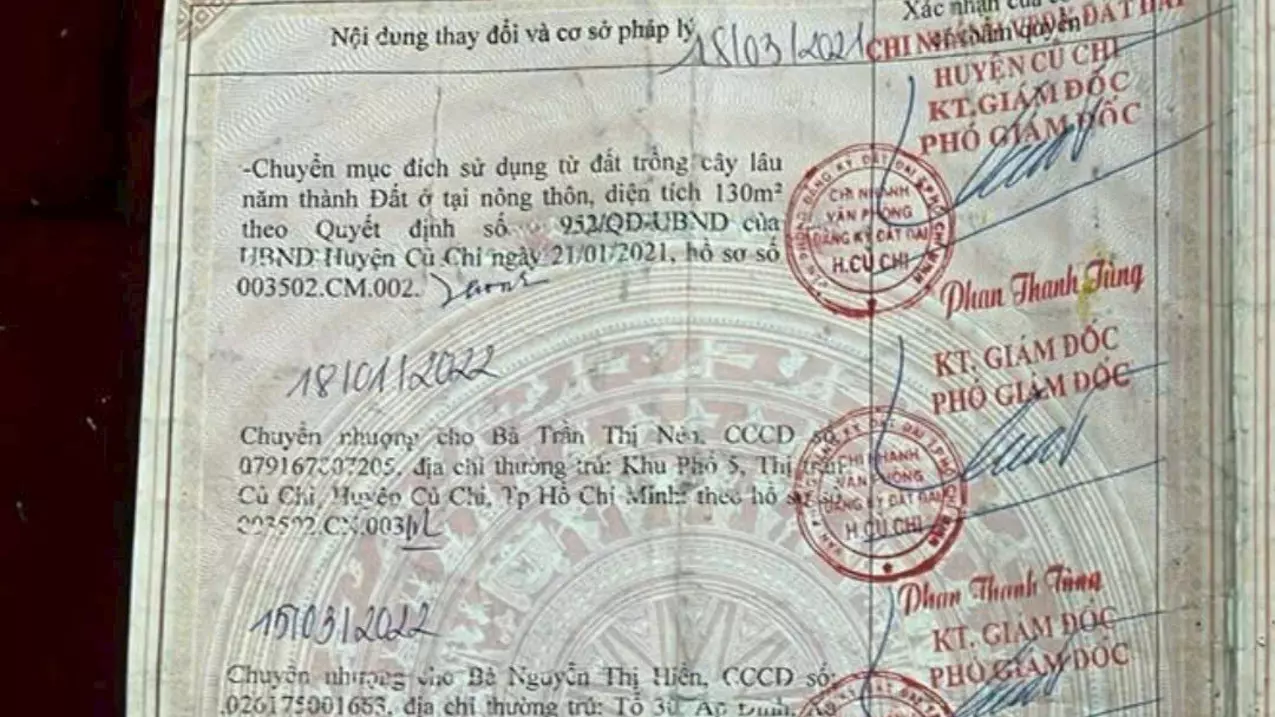 Nội dung thay đổi và cơ sở pháp lý
Xác nhận của cơ
thẩm quyền
18/03/2021
CHI NHÁNH VPĐK ĐẤT ĐAI
HUYỆN CỦ CHI
KT.GIÁM ĐỐC
PHÓ GIÁM ĐỐC
-Chuyển mục đích sử dụng từ đất trồng cây lâu
năm thành Đất ở tại nông thôn, diện tích 130m²
theo Quyết định số 952/QĐ-UBND của
UBND Huyện Củ Chi ngày 21/01/2021, hồ sơ số
003502.CM.002.
CHI NHÁNH
VĂN PHÒNG
ĐĂNG KÝ ĐẤT ĐAI
H.CỦ CHI
Phan Thanh Tùng
18/01/2022
KT. GIÁM ĐỐC
PHÓ GIÁM ĐỐC
Chuyển nhượng cho Bà Trần Thị Nén, CCCD số
địa chỉ thường trú: Khu Phố 5, Thị trấn
Củ Chi, Huyện Củ Chi, Tp Hồ Chí Minh; theo hồ sơ số
003502.CN.003
CHI NHÁNH
VĂN PHÒNG
ĐĂNG KÝ ĐẤT ĐAI
H.CỦ CHI
Phan Thanh Tùng
15/03/2022
KT. GIÁM ĐỐC
PHÓ GIÁM ĐỐC
Chuyển nhượng cho Bà Nguyễn Thị Hiền, CCCD số:
địa chỉ thường trú: Tổ 30, Ấp Đình,